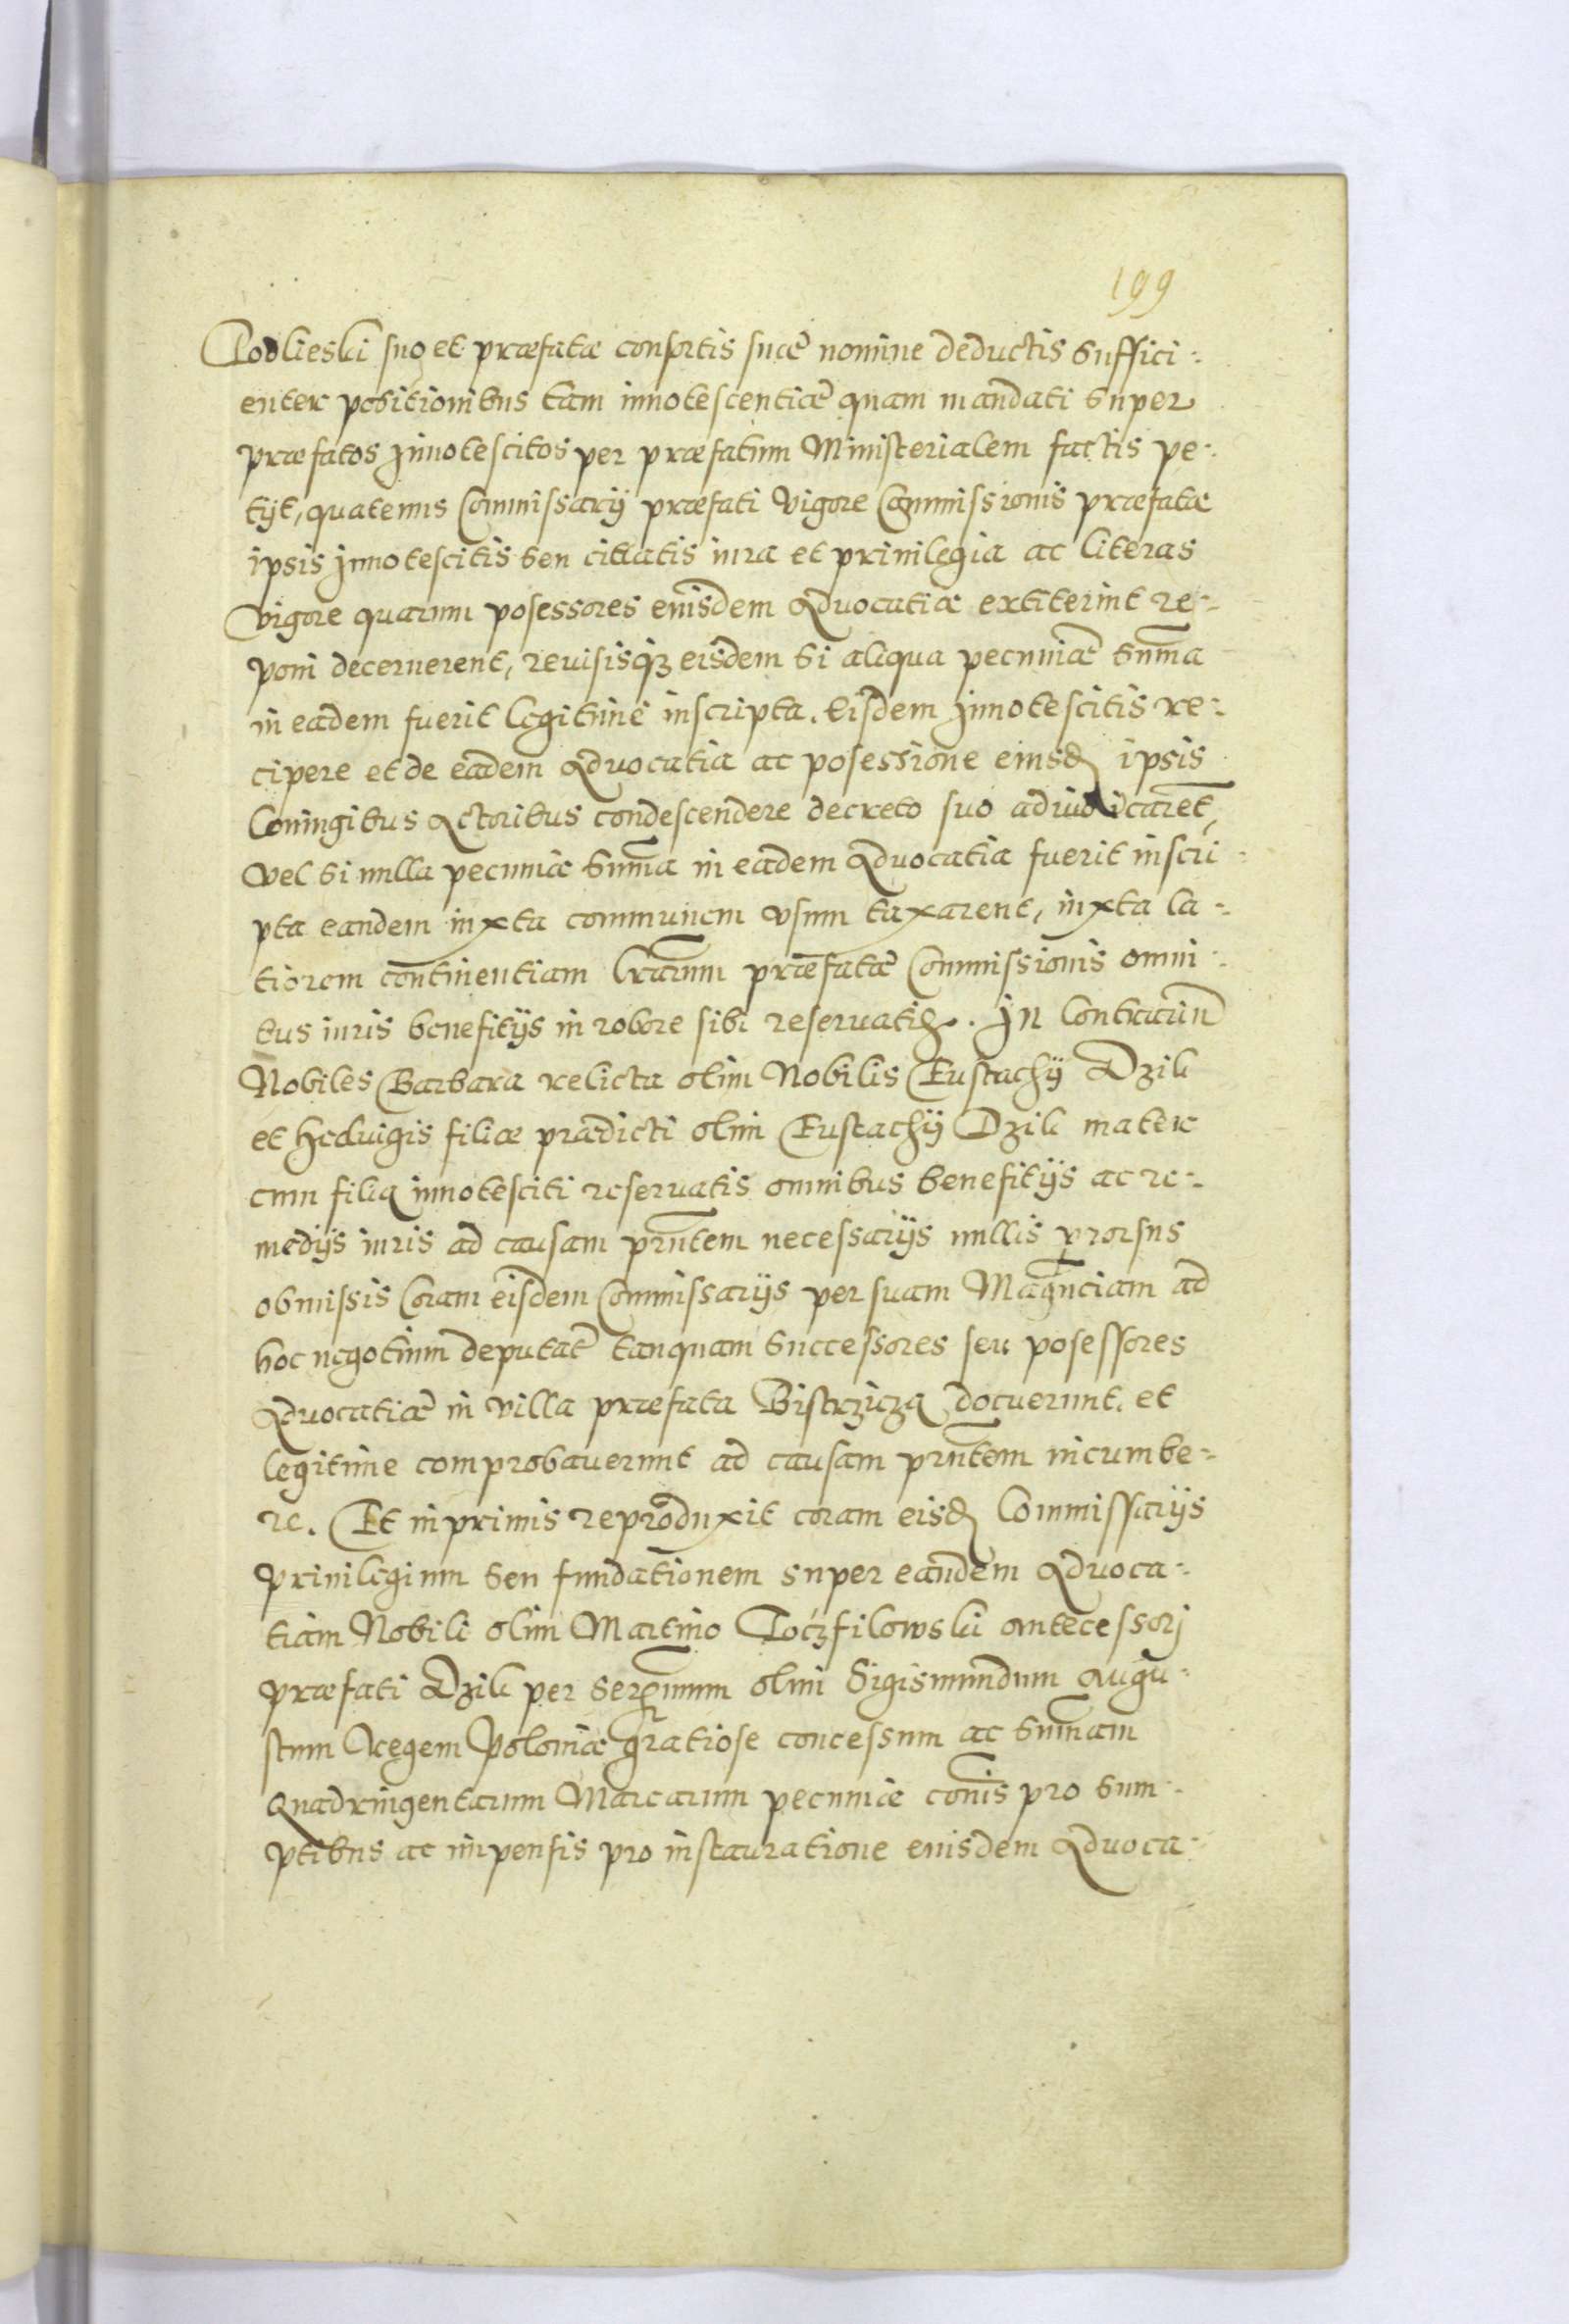 199
Podlieski suo et præfatæ consortis suæ nomine deductis suffici-
enter positionibus tam innotescentiæ quam mandati super
præfatos Innotescitos per præfatum Ministerialem factis pe-
tyt, quatenus Commissarij præfati vigore Commissionis præfatæ
ipsis Innotescitis seu citatis iura et priuilegia ac literas
vigore quarum posessores euisdem Aduocatiæ extiterint re-
poni decernerent, reuisisq3 eisdem si aliqua pecuniæ sum̄a
in eadem fuerit legitimè inscripta. Eisdem Innotescitis re-
cipere et de eadem Aduocatia ac posessione eiusd ipsis
Coniugibus Actoribus condescendere decreto suo adiudicaret,
vel si nulla pecuniæ sum̄a in eadem Aduocatia fuerit inscri-
pta eandem iuxta communem vsum taxarent, iuxta la-
tiorem continentiam lrarum præfatæ Commissionis omni-
bus iuris benefitijs in robore sibi reseruatis. In Contrarium
Nobiles Barbara relicta olim Nobilis Eustachij Dzik
et Heduigis filiæ prædicti olim Eustachij Dzik mater
cum filia innotesciti reseruatis omnibus benefitijs ac re-
medijs iuris ad causam prn̄tem necessarijs nullis prorsus
obmissis Coram eisdem Commissarijs per suam Magn̄ciam ad
hoc negotium deputat tanquam successores seu posessores
Aduocatiæ in villa præfata Bistrzicza docuerunt. et
legitime comprobauerunt ad causam prn̄tem incumbe-
re. Et inprimis reproduxit coram eisd Commissarijs
priuilegium seu fundationem super eandem Aduoca-
tiam Nobili olim Martino Poczfilowski antecessorj
præfati Dzik per Serenmum olim Sigismundum Augu-
stum Regem Poloniæ gratiose concessum ac sum̄am
Quadringentarum Marcarum pecuniæ com̄is pro sum-
ptibus ac impensis pro instauratione euisdem Aduoca-